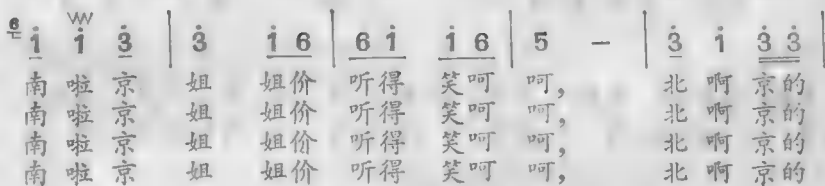 6 i i 3 | 3 i 6 | 6 i i 6 | 5 — | 3 i 3 3 |
南 啦 京 姐 姐价 听得 笑呵 呵， 北 啊 京的
南 啦 京 姐 姐价 听得 笑呵 呵， 北 啊 京的
南 啦 京 姐 姐价 听得 笑呵 呵， 北 啊 京的
南 啦 京 姐 姐价 听得 笑呵 呵， 北 啊 京的